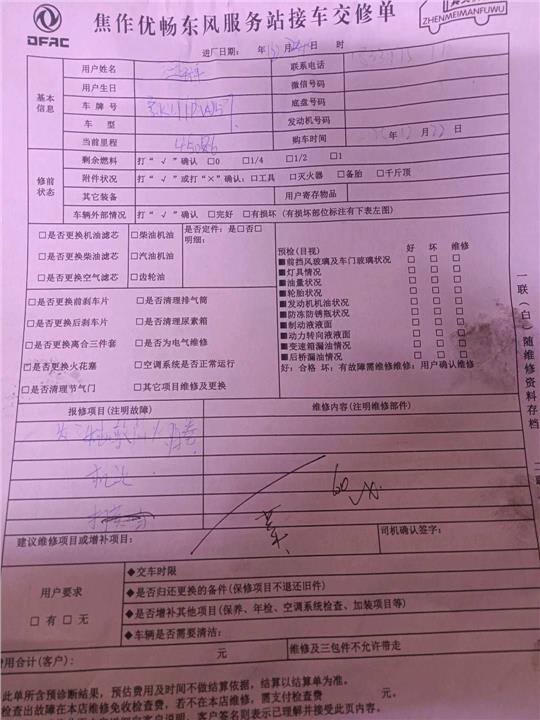 DFAC
焦作优畅东风服务站接车交修单
ZHENMEIMANFUWU
进厂日期: 年 月 日 时
基本信息
用户姓名 联系电话
用户生日 微信号码
车牌号 底盘号码
车型 发动机号码
当前里程 45086 购车时间 年12月22日
修前状态
剩余燃料 打“√”确认 □0 □1/4 □1/2 □1
附件状况 打“√”或打“×”确认:□工具 □灭火器 □备胎 □千斤顶
其它装备 用户寄存物品
车辆外部情况 打“√”确认 □完好 □有损坏(有损坏部位标注有下表左图)
□是否更换机油滤芯 □柴油机油 是否定件: 是□否□
明细:
□是否更换柴油滤芯 □汽油机油
□是否更换空气滤芯 □齿轮油
□是否更换前刹车片 □是否清理排气筒
□是否更换后刹车片 □是否清理尿素箱
□是否更换离合三件套 □是否为电气维修
□是否更换火花塞 □空调系统是否正常运行
□是否清理节气门 □其它项目维修及更换
预检(目视) 好 坏 维修
■前挡风玻璃及车门玻璃状况 □ □ □
■灯具情况 □ □ □
■油量状况 □ □ □
■轮胎状况 □ □ □
■发动机机油状况 □ □ □
■防冻防锈瓶状况 □ □ □
■制动液液面 □ □ □
■动力转向液液面 □ □ □
■变速箱漏油情况 □ □ □
■后桥漏油情况 □ □ □
好:合格 坏:有故障需维修维修:用户确认维修
报修项目(注明故障) 维修内容(注明维修部件)
60
建议维修项目或增补项目: 司机确认签字:
用户要求
□有□无
◆交车时限
◆是否归还更换的备件(保修项目不退还旧件)
◆是否增补其他项目(保养、年检、空调系统检查、加装项目等)
◆车辆是否需要清洁:
费用合计(客户): 元 维修及三包件不允许带走
此单所含预诊断结果,预估费用及时间不做结算依据,结算以结算单为准。
检查出故障在本店维修免收检查费,若不在本店维修,需支付检查费 元。
客户签名则表示已理解并接受此页内容。
一联(白)随维修资料存档